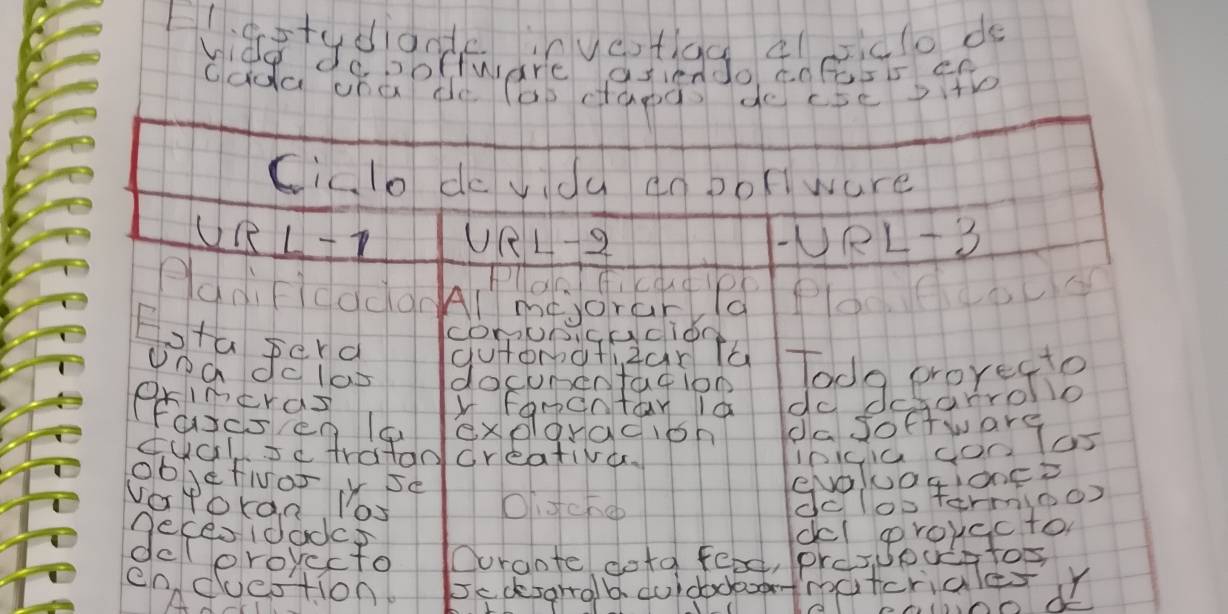 El estudiante investiga el siclo de
vida de software asiendo enfasis en
cada una de las etapas de ese sitio
Ciclo de vida en software
URL-1
Planificacion
Esta sera
una de las
primeras
fases en la
cual se tratan
objetivos y se
valoran los
necesidades
del proyecto
en cuestion.
URL-2
Planificacion
Al mejorar la
comunicación
automatizar la
documentacion
y fomentar la
exploración
creativa.
Diseño
Durante esta fase,
se desarrolla
-URL-3
Planificacion
Todo proyecto
de desarrollo
de software
inicia con las
evaluaciones
de los terminos
del proyecto,
presupuestos
materiales y